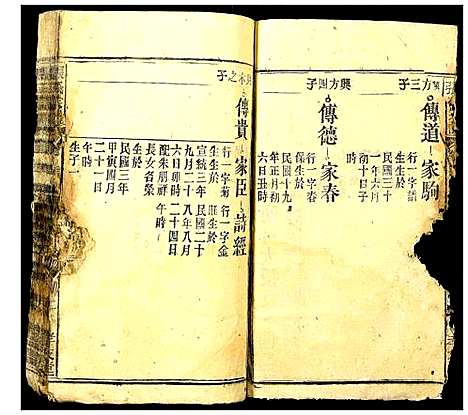 方三子
傳道 家駒
行一字諧
生於
民國三十
一年六月
初十日子
時
興方四子
傳德 家春
行一字春
保生於
民國十九
年正月初
六日丑時
之子
傳貴 家臣 詩經
行一字菊
生生於
宣統三年
九月二十
六日卯時
配朱朋祥
長女名榮
生於
民國三年
甲寅四月
二十一日
午時
生子一
行一字金
旺生於
民國二十
八年八月
二十四日
午時